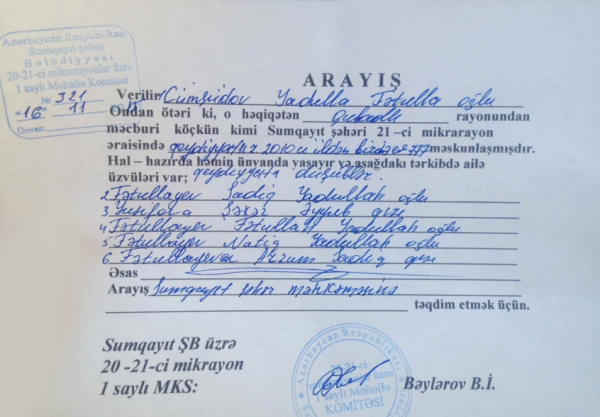 Azərbaycan Respublikası
Sumqayıt şəhər
Bələdiyyəsi
20-21-ci mikrarayonlar üzrə
1 saylı Məhəllə Komitəsi
№ 321
"16" 11
ARAYIŞ
Verilir Cümşüdov Yadulla Fətulla oğlu
Ondan ötəri ki, o həqiqətən Qubadlı rayonundan
məcburi köçkün kimi Sumqayıt şəhəri 21 –ci mikrarayon
əraisində 2010 məskunlaşmışdır.
Hal – hazırda həmin ünvanda yaşayır və aşağdakı tərkibdə ailə
üzvüləri var; qeydiyyata düşüblər.
2. Fətullayev Sadiq Yadullah oğlu
3. Yusifova Şəkər Əyyub qızı
4. Fətullayev Fətullah Yadullah oğlu
5. Fətullayev Natiq Yadullah oğlu
6. Fətullayeva Arzum Sadiq qızı
Əsas
Arayış Sumqayıt şəhər məhkəməsinə
təqdim etmək üçün.
Sumqayıt ŞB üzrə
20 -21-ci mikrayon
1 saylı MKS:
Bəylərov B.İ.
Azərbaycan Respublikası
20-21-ci
mikrarayonlar üzrə
1 saylı Məhəllə
KOMİTƏSİ